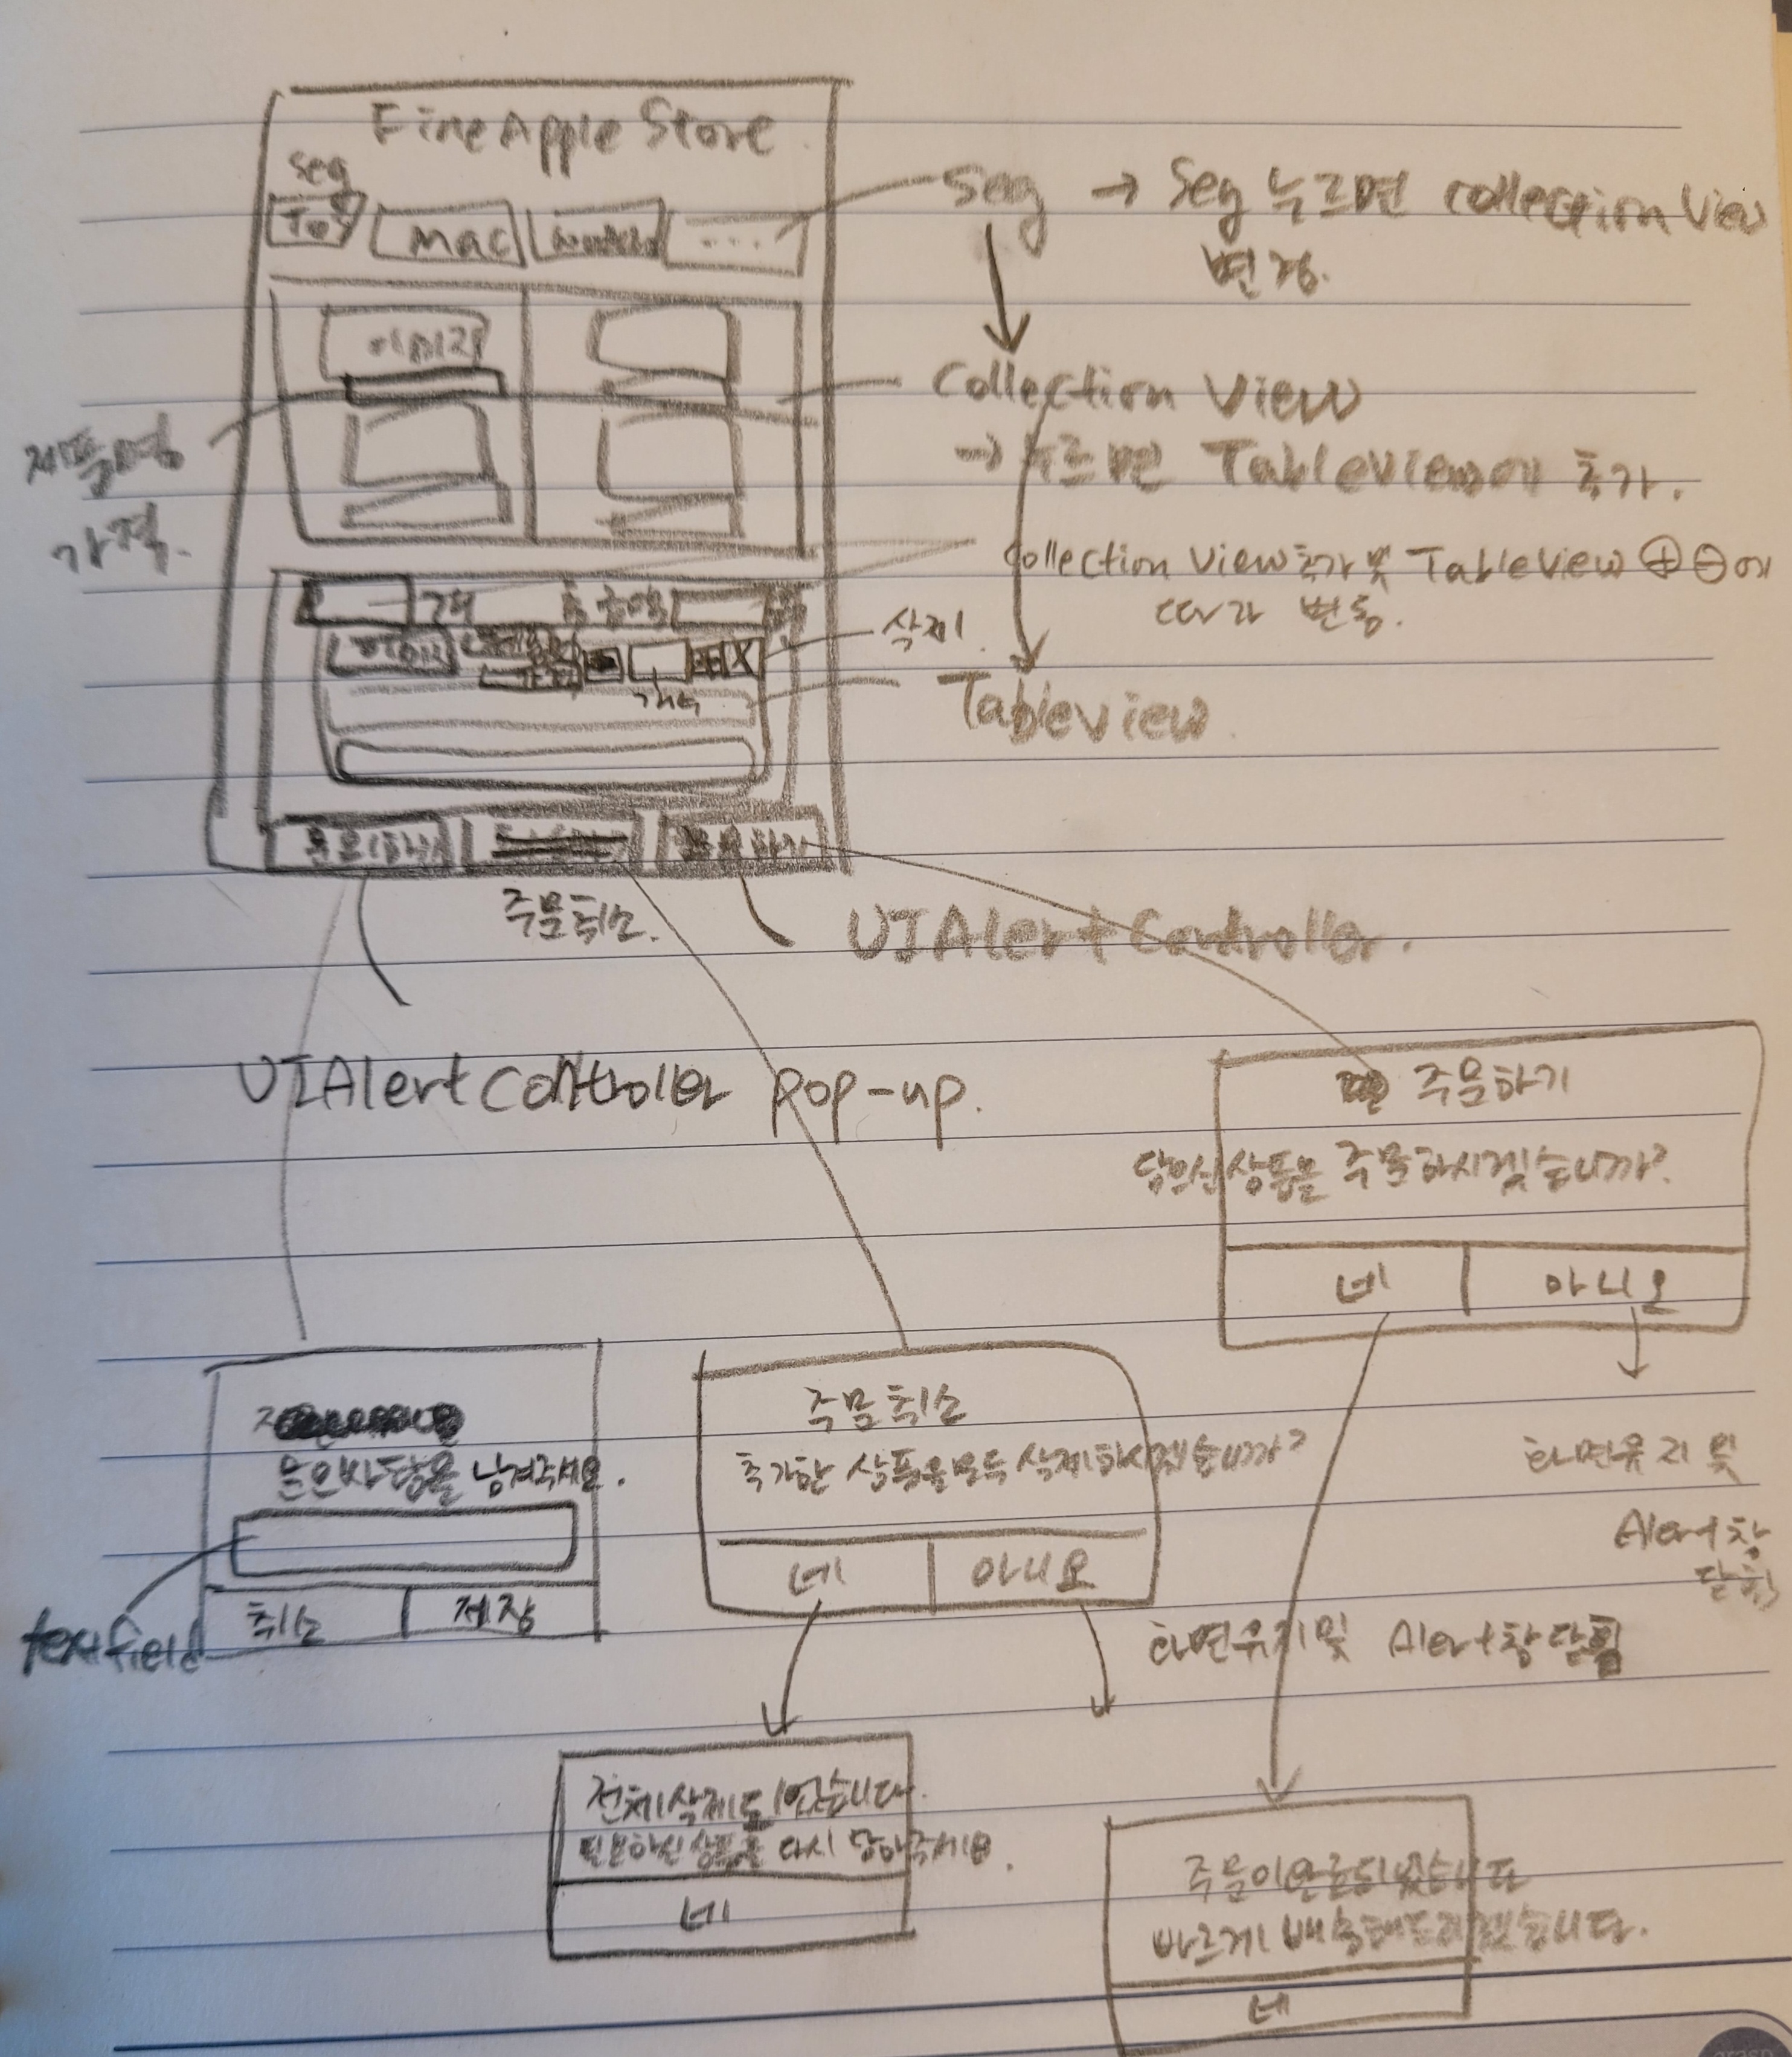 FineApple Store
Seg
Mac
....
Seg → Seg 누르면 collection View
변경.
이미지
제품명
가격.
Collection View
→ 누르면 TableView에 추가.
Collection View 추가 및 TableView ⊕⊖에
따라 변동.
총 금액
X
삭제
개수
TableView.
문의하기
주문하기
주문취소.
UIAlertController.
UIAlertController pop-up.
주문하기
담으신 상품을 주문하시겠습니까?
네
아니오
문의사항을 남겨주세요.
textfield
취소
저장
주문취소
추가한 상품을 모두 삭제하시겠습니까?
네
아니요
화면유지 및
Alert창
닫힘
화면유지 및 Alert창 닫힘
전체 삭제되었습니다.
필요하신 상품을 다시 담아주세요.
네
주문이 완료되었습니다
빠르게 배송해드리겠습니다.
네